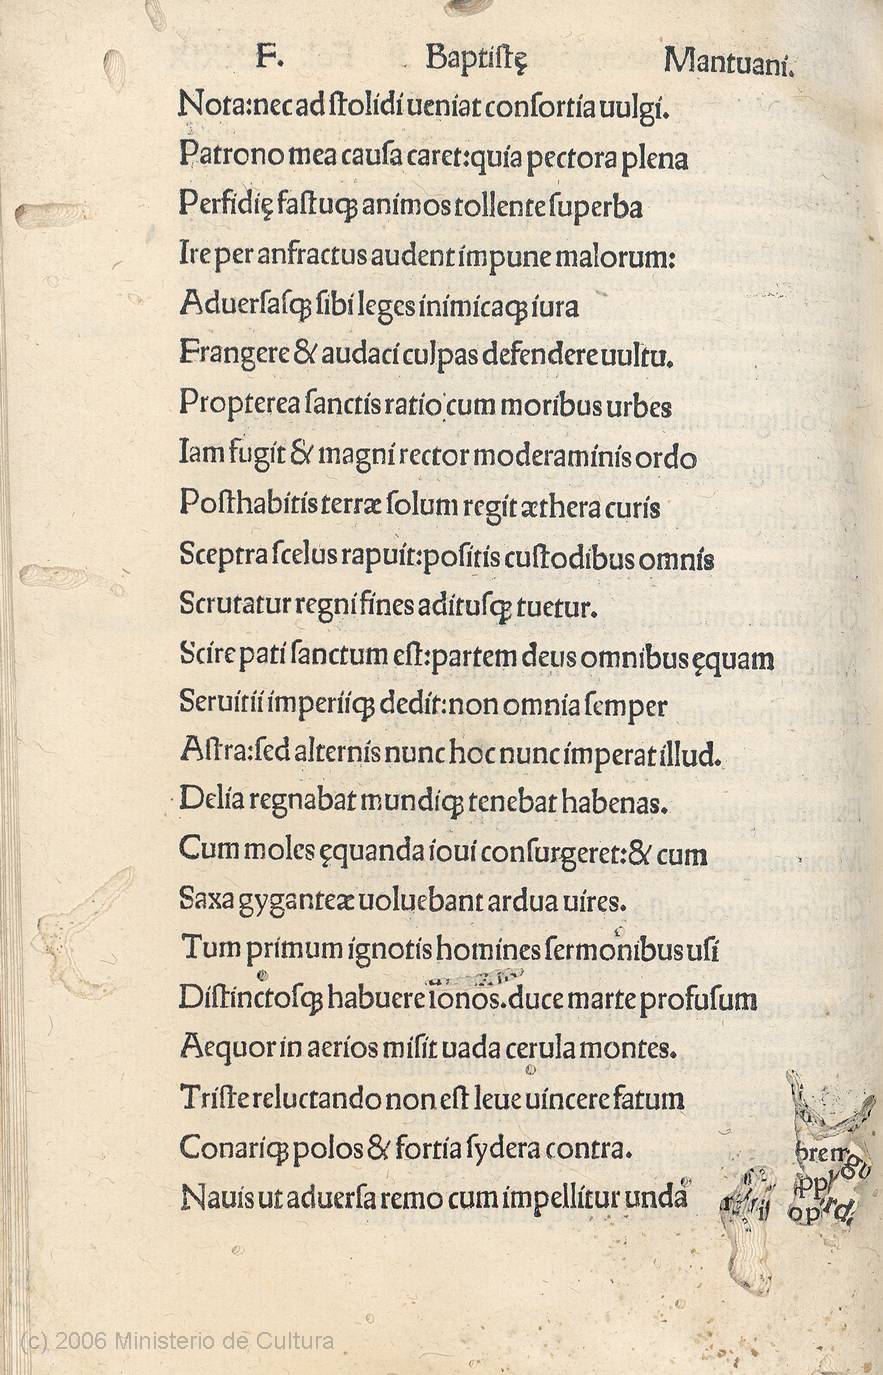 F. Baptiſtę Mantuani.
Nota:nec ad ſtolidi ueniat conſortia uulgi.
Patrono mea cauſa caret:quia pectora plena
Perfidię faſtuqꝫ animos tollente ſuperba
Ire per anfractus audent impune malorum:
Aduerſaſqꝫ ſibi leges inimicaqꝫ iura
Frangere & audaci culpas defendere uultu.
Propterea ſanctis ratio cum moribus urbes
Iam fugit & magni rector moderaminis ordo
Poſthabitis terræ ſolum regit æthera curis
Sceptra ſcelus rapuit:poſitis cuſtodibus omnis
Scrutatur regni fines adituſqꝫ tuetur.
Scire pati ſanctum eſt:partem deus omnibus ęquam
Seruitii imperiiqꝫ dedit:non omnia ſemper
Aſtra:ſed alternis nunc hoc nunc imperat illud.
Delia regnabat mundiqꝫ tenebat habenas.
Cum moles ęquanda ioui conſurgeret:& cum
Saxa gyganteæ uoluebant ardua uires.
Tum primum ignotis homines ſermonibus uſi
Diſtinctoſqꝫ habuere ſonos.duce marte profuſum
Aequor in aerios miſit uada cerula montes.
Triſte reluctando non eſt leue uincere fatum
Conariqꝫ polos & fortia ſydera contra.
Nauis ut aduerſa remo cum impellitur unda
(c) 2006 Ministerio de Cultura